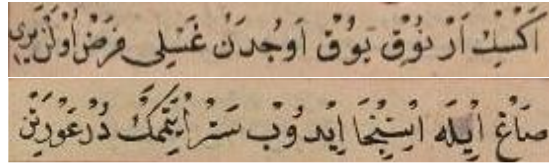 اَكْسِكْ اَرْتُوقْ يُوقْ اَوُجدَنْ غَسْلِى فَرْضْ اُولَنْ يرى
صَاغْ اِيلَه اِسْتِنْجَا اِيدُوبْ سَتْرْ اِيتْمَكْ دُرْ عَوْرَتِنْ